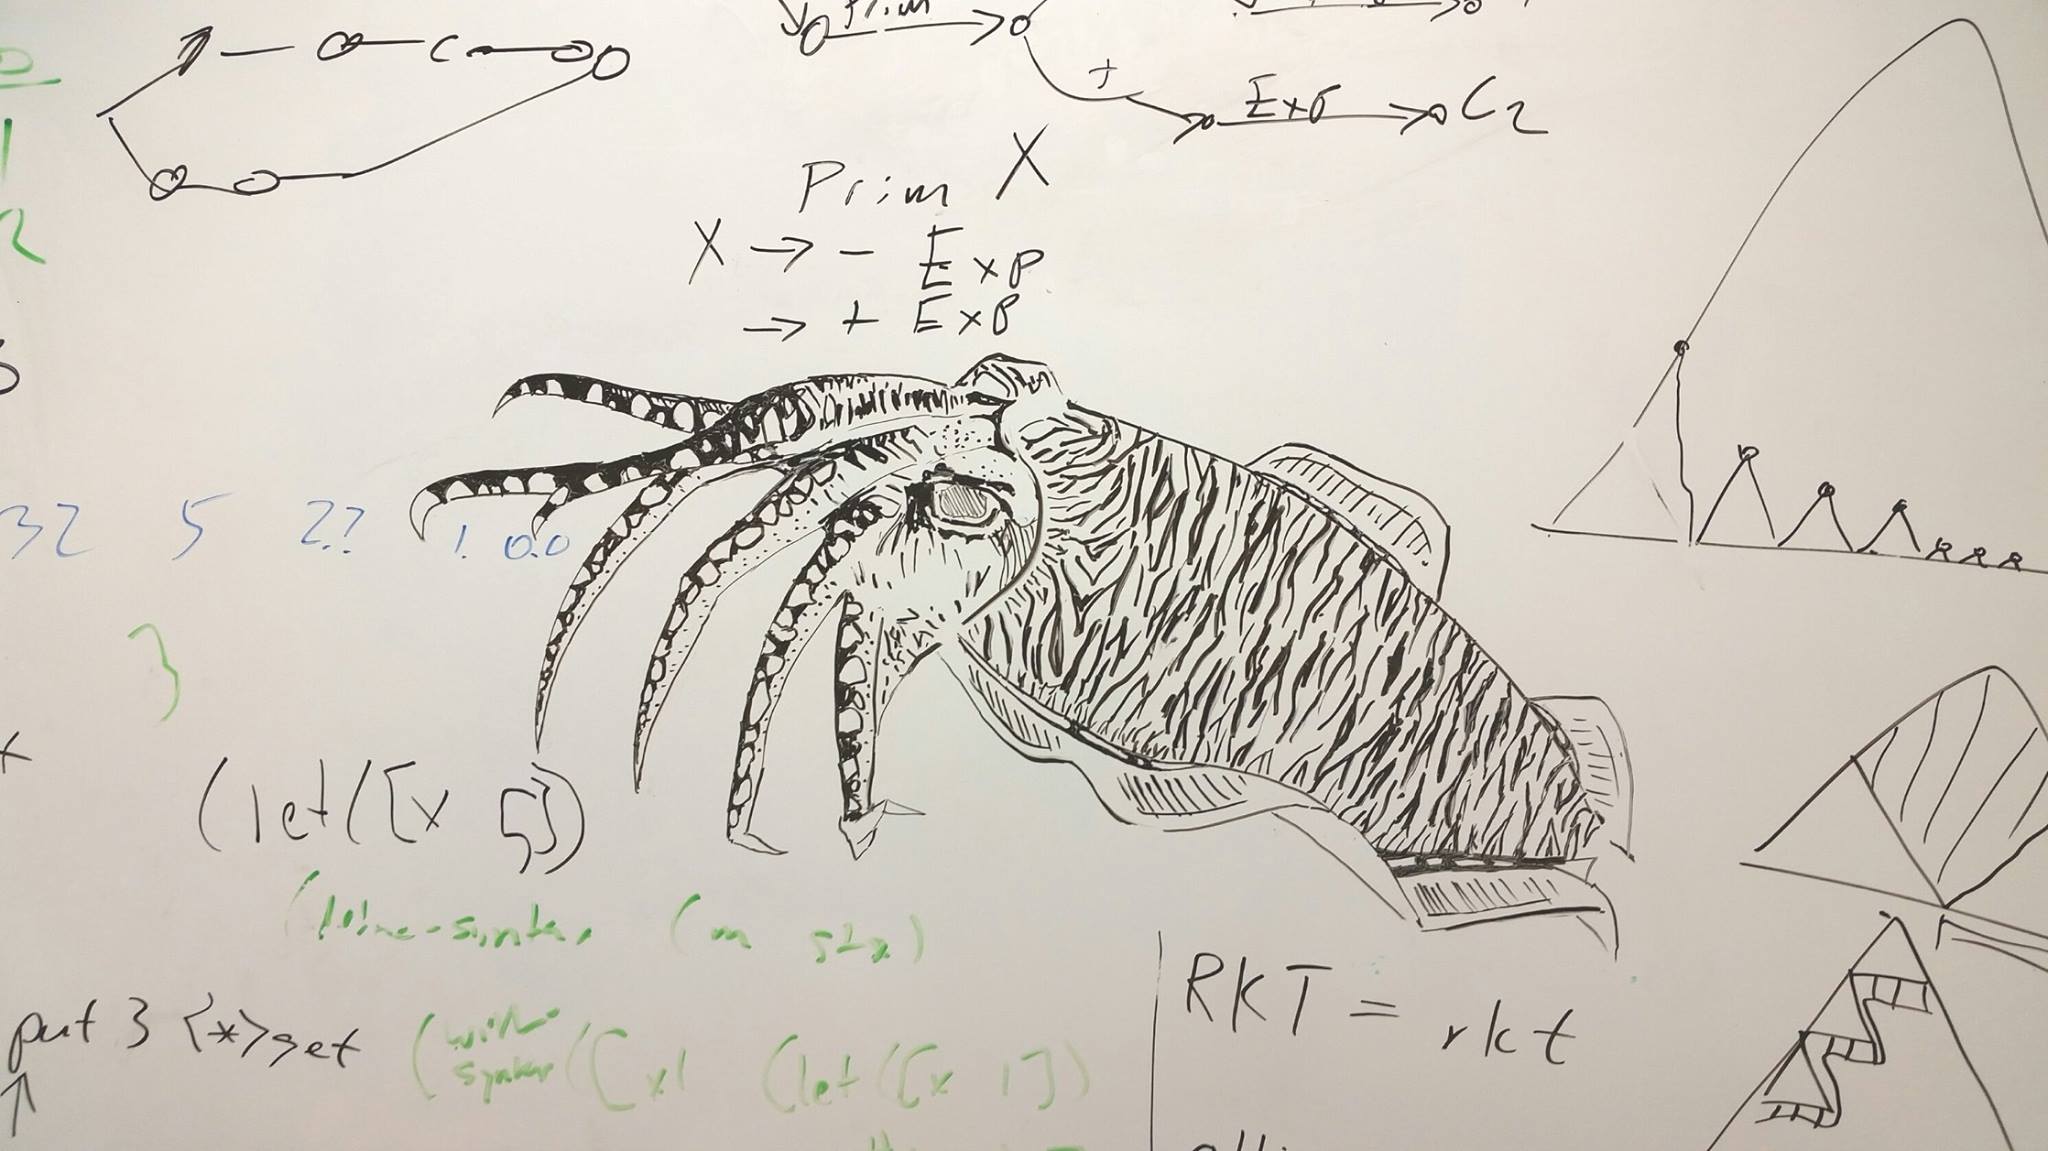 Prim
+
Exp C2
Prim X
X → - Exp
→ + Exp
32 5 2.? 1. 0.0
}
(let ([x 5])
(define-syntax (m stx)
put 3 <*> get
(with-syntax ([x1 (let ([x 1])
RKT = rkt